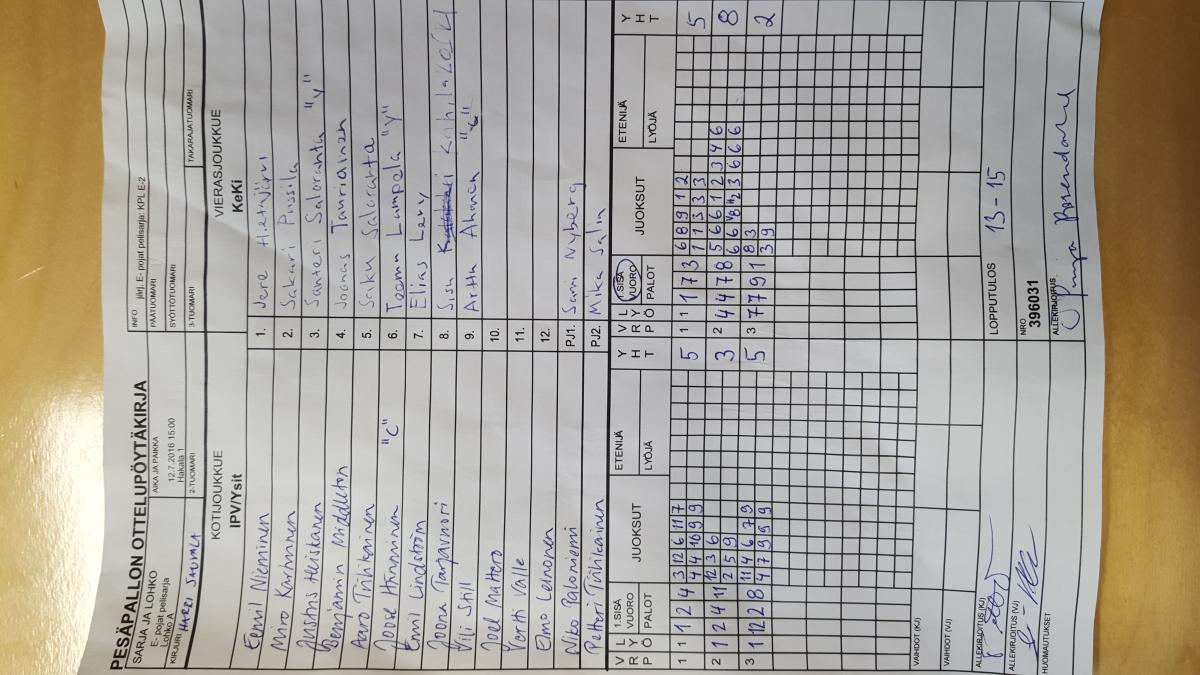 PESÄPALLON OTTELUPÖYTÄKIRJA
SARJA JA LOHKO
E- pojat pelisarja
Lohko A
AIKA JA PAIKKA
12.7.2016 15:00
Hakala 1
INFO järj. E- pojat pelisarja: KPL E-2
PÄÄTUOMARI
SYÖTTÖTUOMARI
KIRJURI HARRI SAUKALA
2-TUOMARI
3-TUOMARI
TAKARAJATUOMARI
KOTIJOUKKUE
IPV/Ysit
VIERASJOUKKUE
KeKi
Eemil Nieminen 1. Jere Hietajärvi
Miro Karhunen 2. Sakari Pussila
Justus Heiskanen 3. Santeri Saloranta "V"
Benjamin Middleton 4. Joonas Tauriainen
Aaro Tiihikainen 5. Saku Saloranta
Joose Hänninen "C" 6. Teemu Lampela "V"
Emil Lindström 7. Elias Lery
Joona Tarpavuori 8. Sisu
Vili Still 9. Arttu Ahonen "C"
Joel Mattero 10.
Vertti Valle 11.
Elmo Leinonen 12.
Niko Paloniemi PJ1. Sami Nyberg
Petteri Tiihikainen PJ2. Mika Salin
V R L Y P Ö 1.SISÄ VUORO PALOT JUOKSUT ETENIJÄ LYÖJÄ Y H T
V R L Y P Ö 1.SISÄ VUORO PALOT JUOKSUT ETENIJÄ LYÖJÄ Y H T
1 1 1 2 4 3 12 6 11 7 5
4 4 10 9 9
2 1 2 4 11 12 3 6 3
2 5 9
3 1 12 8 11 4 6 7 9 5
4 7 9 9 9
1 1 1 7 3 6 8 9 1 2 5
1 1 3 3 3
2 4 4 7 8 5 6 6 1 2 3 4 6 8
3 7 7 9 1 8 3 2
3 9
VAIHDOT (KJ)
VAIHDOT (VJ)
ALLEKIRJOITUS (KJ)
LOPPUTULOS 13 - 15
ALLEKIRJOITUS (VJ)
NRO
396031
HUOMAUTUKSET
ALLEKIRJOITUS